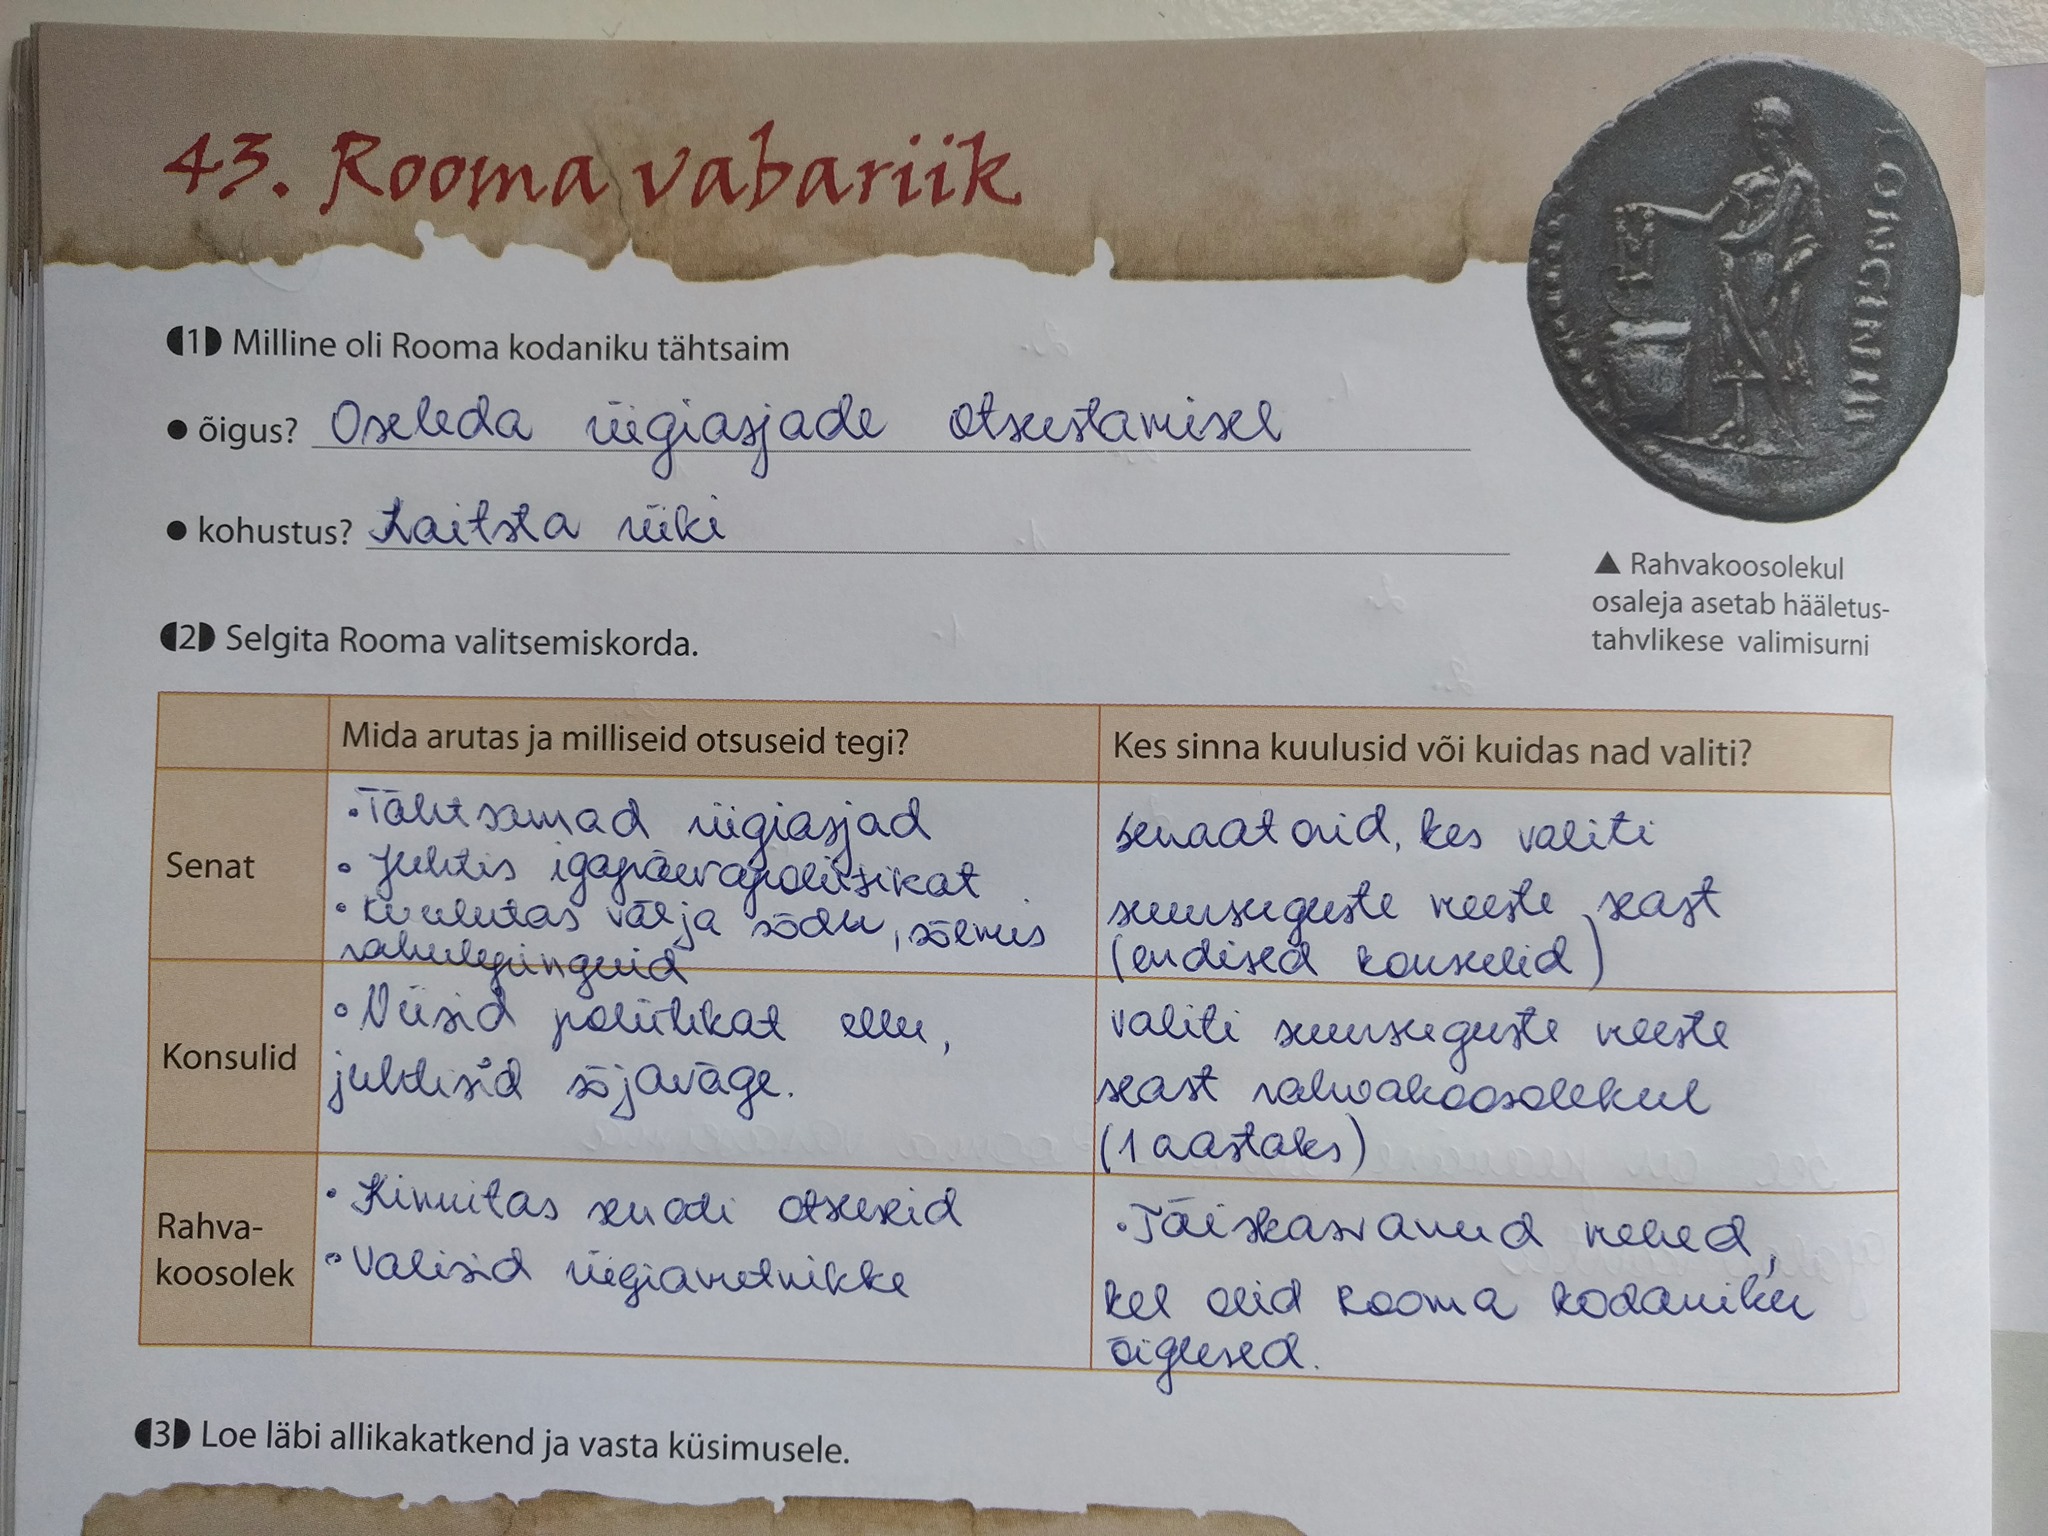 43. Rooma vabariik
1 Milline oli Rooma kodaniku tähtsaim
• õigus? Oseleda riigiasjade otsustamisel
• kohustus? Kaitsta riiki
LONGIN III V
▲ Rahvakoosolekul
osaleja asetab hääletus-
tahvlikese valimisurni
2 Selgita Rooma valitsemiskorda.
Mida arutas ja milliseid otsuseid tegi?
Kes sinna kuulusid või kuidas nad valiti?
Senat
• Tähtsamad riigiasjad
• Juhtis igapäevapoliitikat
• Kuulutas välja sõdu, sõlmis
rahulepinguid
senaatorid, kes valiti
suursuguste meeste seast
(endised konsulid)
Konsulid
• Viisid poliitikat ellu,
juhtisid sõjaväge.
valiti suursuguste meeste
seast rahvakoosolekul
(1 aastaks)
Rahva-
koosolek
• Kinnitas senati otsuseid
• Valisid riigiametnikke
• Täiskasvanud mehed,
kel olid Rooma kodaniku
õigused.
3 Loe läbi allikakatkend ja vasta küsimusele.